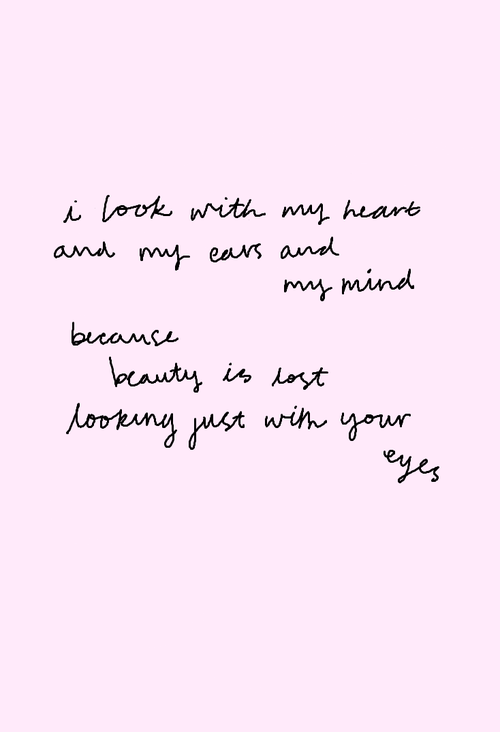 i look with my heart
and my ears and
my mind
because
beauty is lost
looking just with your
eyes